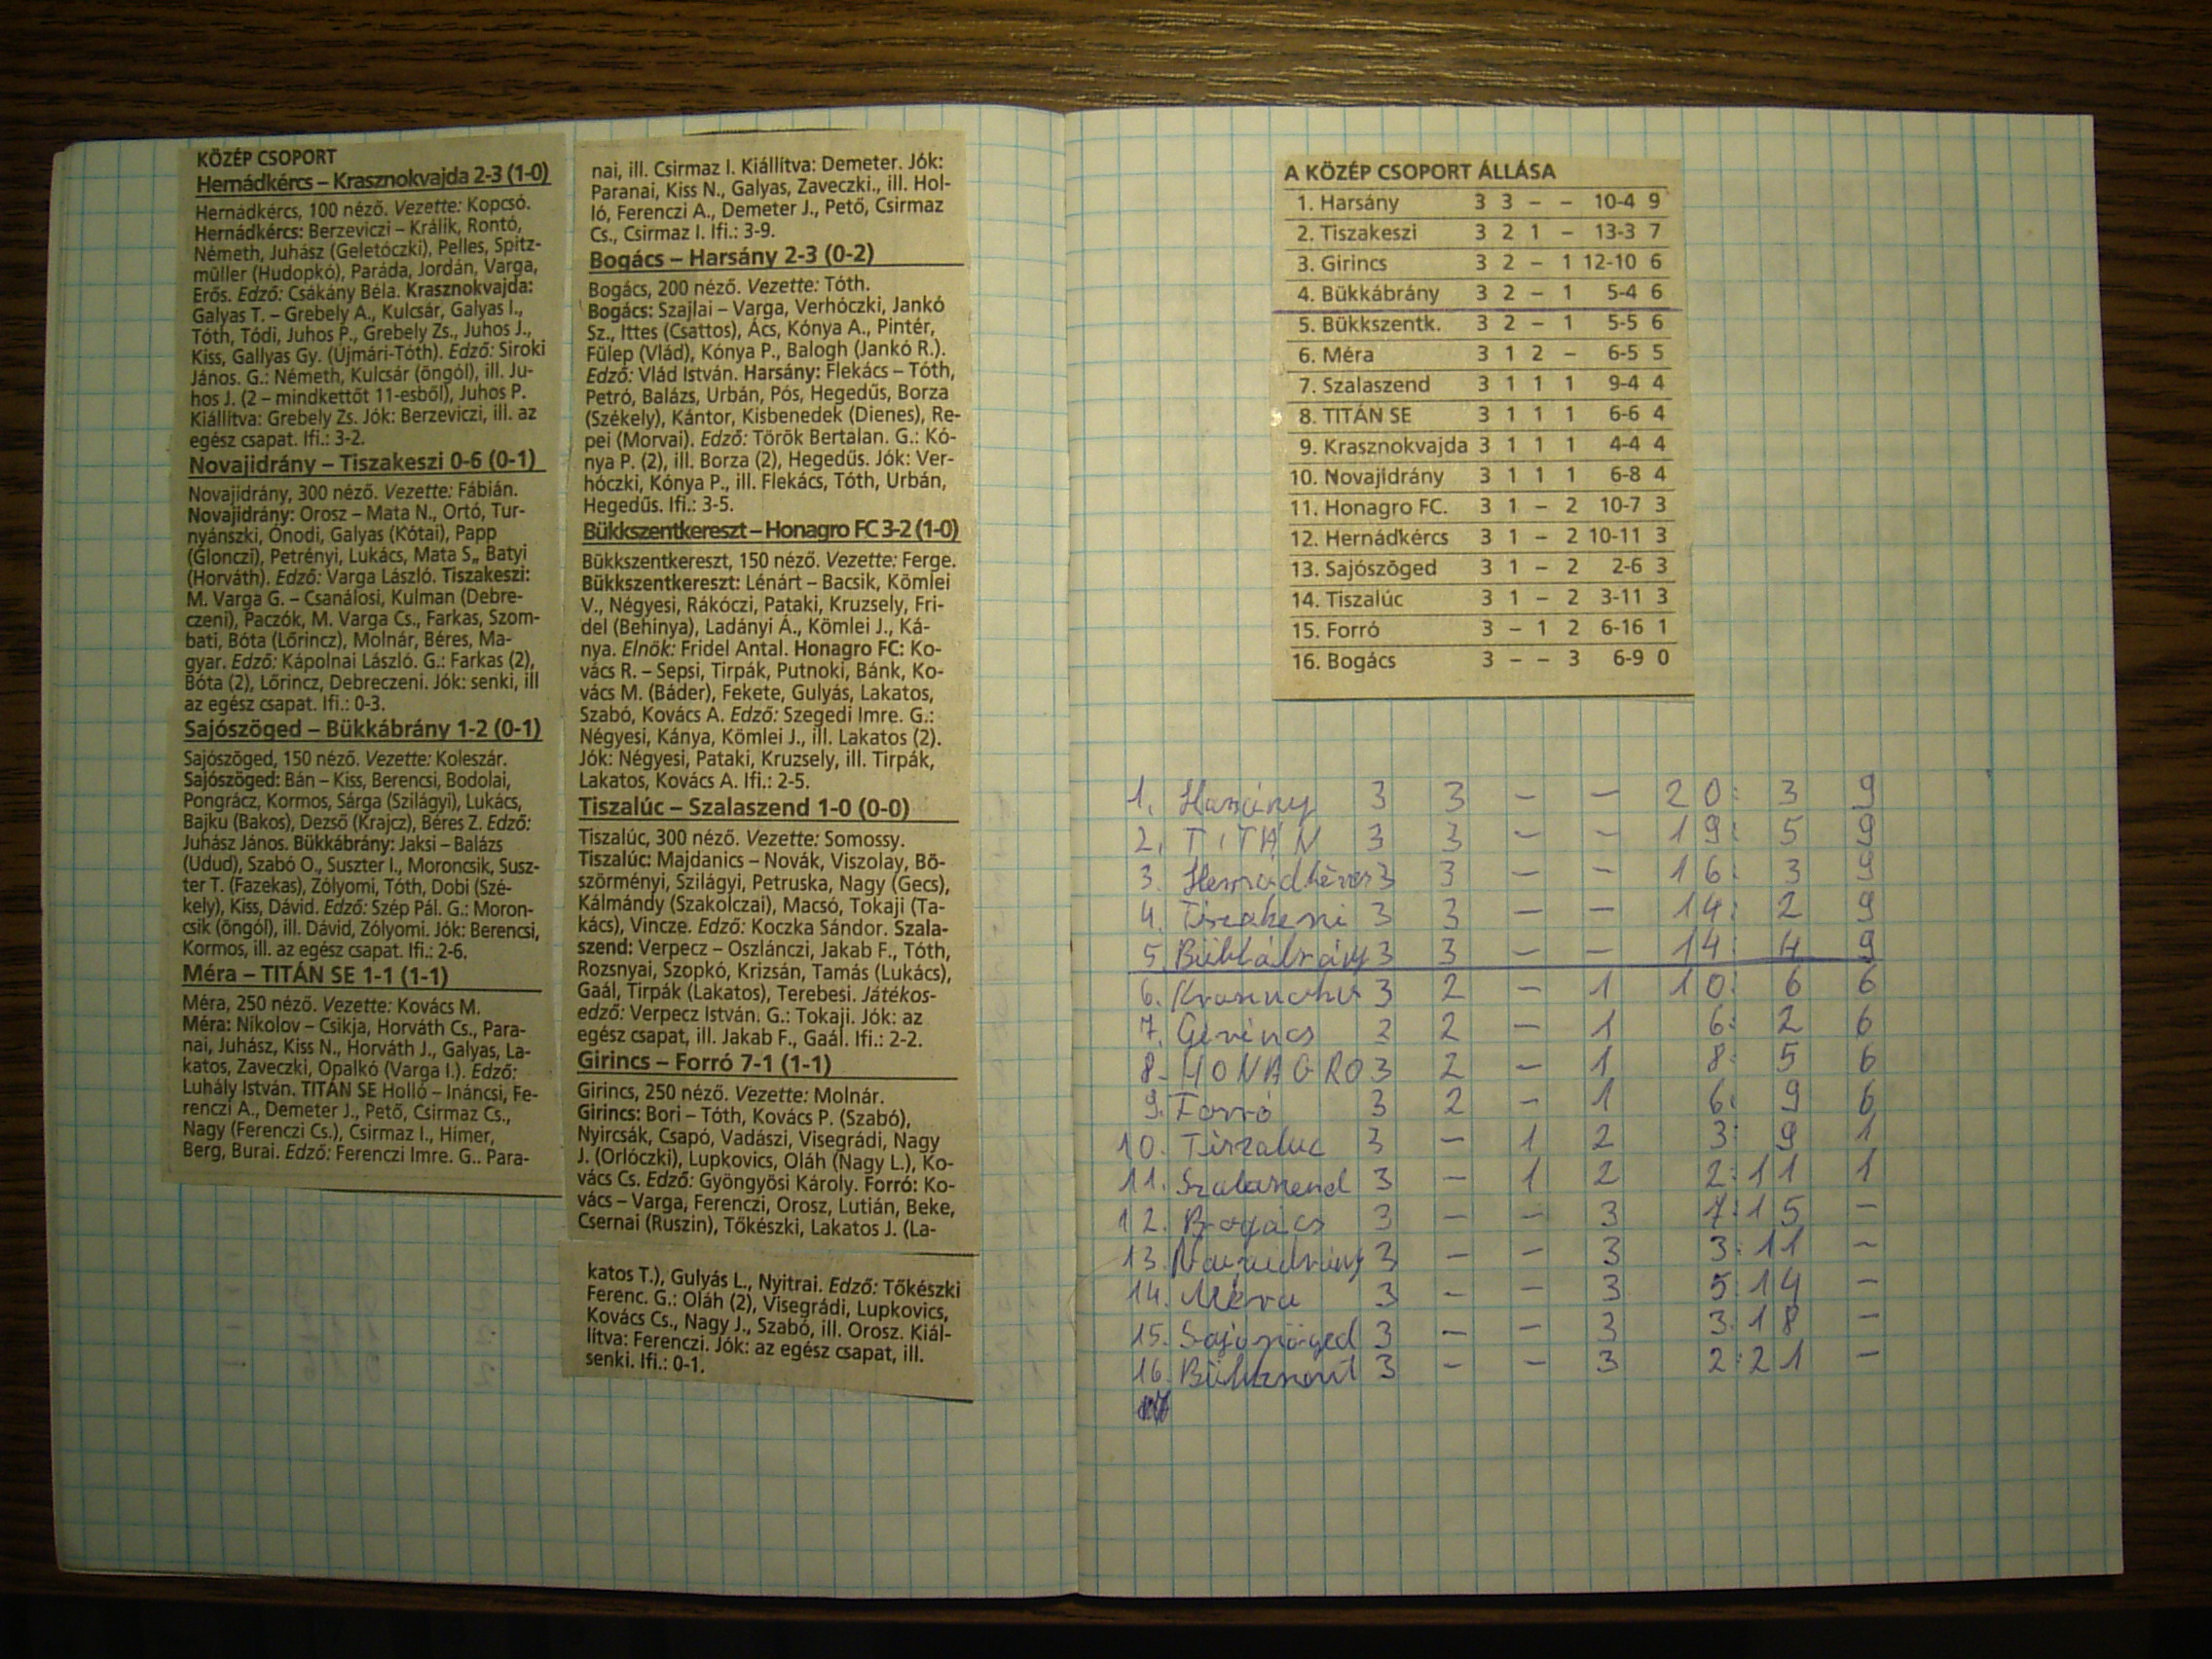 KÖZÉP CSOPORT
Hernádkércs – Krasznokvajda 2-3 (1-0)
Hernádkércs, 100 néző. Vezette: Kopcsó.
Hernádkércs: Berzeviczi – Králik, Rontó,
Németh, Juhász (Geletóczki), Pelles, Spitz-
müller (Hudopkó), Paráda, Jordán, Varga,
Erős. Edző: Csákány Béla. Krasznokvajda:
Galyas T. – Grebely A., Kulcsár, Galyas I.,
Tóth, Tódi, Juhos P., Grebely Zs., Juhos J.,
Kiss, Gallyas Gy. (Újmári-Tóth). Edző: Siroki
János. G.: Németh, Kulcsár (öngól), ill. Ju-
hos J. (2 – mindkettőt 11-esből), Juhos P.
Kiállítva: Grebely Zs. Jók: Berzeviczi, ill. az
egész csapat. Ifi.: 3-2.
Novajidrány – Tiszakeszi 0-6 (0-1)
Novajidrány, 300 néző. Vezette: Fábián.
Novajidrány: Orosz – Mata N., Ortó, Tur-
nyánszki, Ónodi, Galyas (Kótai), Papp
(Glonczi), Petrényi, Lukács, Mata S,, Batyi
(Horváth). Edző: Varga László. Tiszakeszi:
M. Varga G. – Csanálosi, Kulman (Debre-
czeni), Paczók, M. Varga Cs., Farkas, Szom-
bati, Bóta (Lőrincz), Molnár, Béres, Ma-
gyar. Edző: Kápolnai László. G.: Farkas (2),
Bóta (2), Lőrincz, Debreczeni. Jók: senki, ill
az egész csapat. Ifi.: 0-3.
Sajószöged – Bükkábrány 1-2 (0-1)
Sajószöged, 150 néző. Vezette: Koleszár.
Sajószöged: Bán – Kiss, Berencsi, Bodolai,
Pongrácz, Kormos, Sárga (Szilágyi), Lukács,
Bajku (Bakos), Dezső (Krajcz), Béres Z. Edző:
Juhász János. Bükkábrány: Jaksi – Balázs
(Udud), Szabó O., Suszter I., Moroncsik, Susz-
ter T. (Fazekas), Zólyomi, Tóth, Dobi (Szé-
kely), Kiss, Dávid. Edző: Szép Pál. G.: Moron-
csik (öngól), ill. Dávid, Zólyomi. Jók: Berencsi,
Kormos, ill. az egész csapat. Ifi.: 2-6.
Méra – TITÁN SE 1-1 (1-1)
Méra, 250 néző. Vezette: Kovács M.
Méra: Nikolov – Csikja, Horváth Cs., Para-
nai, Juhász, Kiss N., Horváth J., Galyas, La-
katos, Zaveczki, Opalkó (Varga I.). Edző:
Luhály István. TITÁN SE Holló – Ináncsi, Fe-
renczi A., Demeter J., Pető, Csirmaz Cs.,
Nagy (Ferenczi Cs.), Csirmaz I., Himer,
Berg, Burai. Edző: Ferenczi Imre. G.. Para-
nai, ill. Csirmaz I. Kiállítva: Demeter. Jók:
Paranai, Kiss N., Galyas, Zaveczki., ill. Hol-
ló, Ferenczi A., Demeter J., Pető, Csirmaz
Cs., Csirmaz I. Ifi.: 3-9.
Bogács – Harsány 2-3 (0-2)
Bogács, 200 néző. Vezette: Tóth.
Bogács: Szajlai – Varga, Verhóczki, Jankó
Sz., Ittes (Csattos), Ács, Kónya A., Pintér,
Fülep (Vlád), Kónya P., Balogh (Jankó R.).
Edző: Vlád István. Harsány: Flekács – Tóth,
Petró, Balázs, Urbán, Pós, Hegedűs, Borza
(Székely), Kántor, Kisbenedek (Dienes), Re-
pei (Morvai). Edző: Török Bertalan. G.: Kó-
nya P. (2), ill. Borza (2), Hegedűs. Jók: Ver-
hóczki, Kónya P., ill. Flekács, Tóth, Urbán,
Hegedűs. Ifi.: 3-5.
Bükkszentkereszt – Honagro FC 3-2 (1-0)
Bükkszentkereszt, 150 néző. Vezette: Ferge.
Bükkszentkereszt: Lénárt – Bacsik, Kömlei
V., Négyesi, Rákóczi, Pataki, Kruzsely, Fri-
del (Behinya), Ladányi Á., Kömlei J., Ká-
nya. Elnök: Fridel Antal. Honagro FC: Ko-
vács R. – Sepsi, Tirpák, Putnoki, Bánk, Ko-
vács M. (Báder), Fekete, Gulyás, Lakatos,
Szabó, Kovács A. Edző: Szegedi Imre. G.:
Négyesi, Kánya, Kömlei J., ill. Lakatos (2).
Jók: Négyesi, Pataki, Kruzsely, ill. Tirpák,
Lakatos, Kovács A. Ifi.: 2-5.
Tiszalúc – Szalaszend 1-0 (0-0)
Tiszalúc, 300 néző. Vezette: Somossy.
Tiszalúc: Majdanics – Novák, Viszolay, Bö-
szörményi, Szilágyi, Petruska, Nagy (Gecs),
Kálmándy (Szakolczai), Macsó, Tokaji (Ta-
kács), Vincze. Edző: Koczka Sándor. Szala-
szend: Verpecz – Oszlánczi, Jakab F., Tóth,
Rozsnyai, Szopkó, Krizsán, Tamás (Lukács),
Gaál, Tirpák (Lakatos), Terebesi. Játékos-
edző: Verpecz István. G.: Tokaji. Jók: az
egész csapat, ill. Jakab F., Gaál. Ifi.: 2-2.
Girincs – Forró 7-1 (1-1)
Girincs, 250 néző. Vezette: Molnár.
Girincs: Bori – Tóth, Kovács P. (Szabó),
Nyircsák, Csapó, Vadászi, Visegrádi, Nagy
J. (Orlóczki), Lupkovics, Oláh (Nagy L.), Ko-
vács Cs. Edző: Gyöngyösi Károly. Forró: Ko-
vács – Varga, Ferenczi, Orosz, Lutián, Beke,
Csernai (Ruszin), Tőkészki, Lakatos J. (La-
katos T.), Gulyás L., Nyitrai. Edző: Tőkészki
Ferenc. G.: Oláh (2), Visegrádi, Lupkovics,
Kovács Cs., Nagy J., Szabó, ill. Orosz. Kiál-
lítva: Ferenczi. Jók: az egész csapat, ill.
senki. Ifi.: 0-1.
A KÖZÉP CSOPORT ÁLLÁSA
1. Harsány 3 3 – – 10-4 9
2. Tiszakeszi 3 2 1 – 13-3 7
3. Girincs 3 2 – 1 12-10 6
4. Bükkábrány 3 2 – 1 5-4 6
5. Bükkszentk. 3 2 – 1 5-5 6
6. Méra 3 1 2 – 6-5 5
7. Szalaszend 3 1 1 1 9-4 4
8. TITÁN SE 3 1 1 1 6-6 4
9. Krasznokvajda 3 1 1 1 4-4 4
10. Novajidrány 3 1 1 1 6-8 4
11. Honagro FC. 3 1 – 2 10-7 3
12. Hernádkércs 3 1 – 2 10-11 3
13. Sajószöged 3 1 – 2 2-6 3
14. Tiszalúc 3 1 – 2 3-11 3
15. Forró 3 – 1 2 6-16 1
16. Bogács 3 – – 3 6-9 0
1. Harsány 3 3 – – 20: 3 9
2. TITÁN 3 3 – – 19: 5 9
3. Hernádkércs 3 3 – – 16: 3 9
4. Tiszakeszi 3 3 – – 14: 2 9
5. Bükkábrány 3 3 – – 14: 4 9
6. 3 2 – 1 10: 6 6
7. Girincs 3 2 – 1 6: 2 6
8. HONAGRO 3 2 – 1 8: 5 6
9. Forró 3 2 – 1 6: 9 6
10. Tiszaluc 3 – 1 2 3: 9 1
11. Szalaszend 3 – 1 2 2:11 1
12. Bogács 3 – – 3 7:15 –
13. 3 – – 3 3:11 –
14. Méra 3 – – 3 5:14 –
15. Sajószöged 3 – – 3 3:18 –
16. Bükkszent 3 – – 3 2:21 –